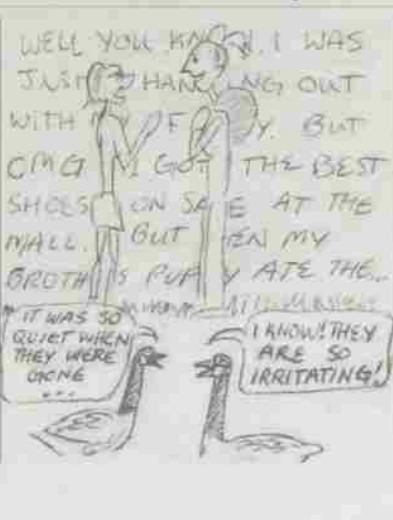 WELL YOU KN W. I WAS
JUST HANGING OUT
WITH F Y. BUT
OMG I GOT THE BEST
SHOES ON SALE AT THE
MALL. BUT EN MY
BROTH S PUPPY ATE THE...
IT WAS SO
QUIET WHEN
THEY WERE
GONE
...
I KNOW! THEY
ARE SO
IRRITATING!